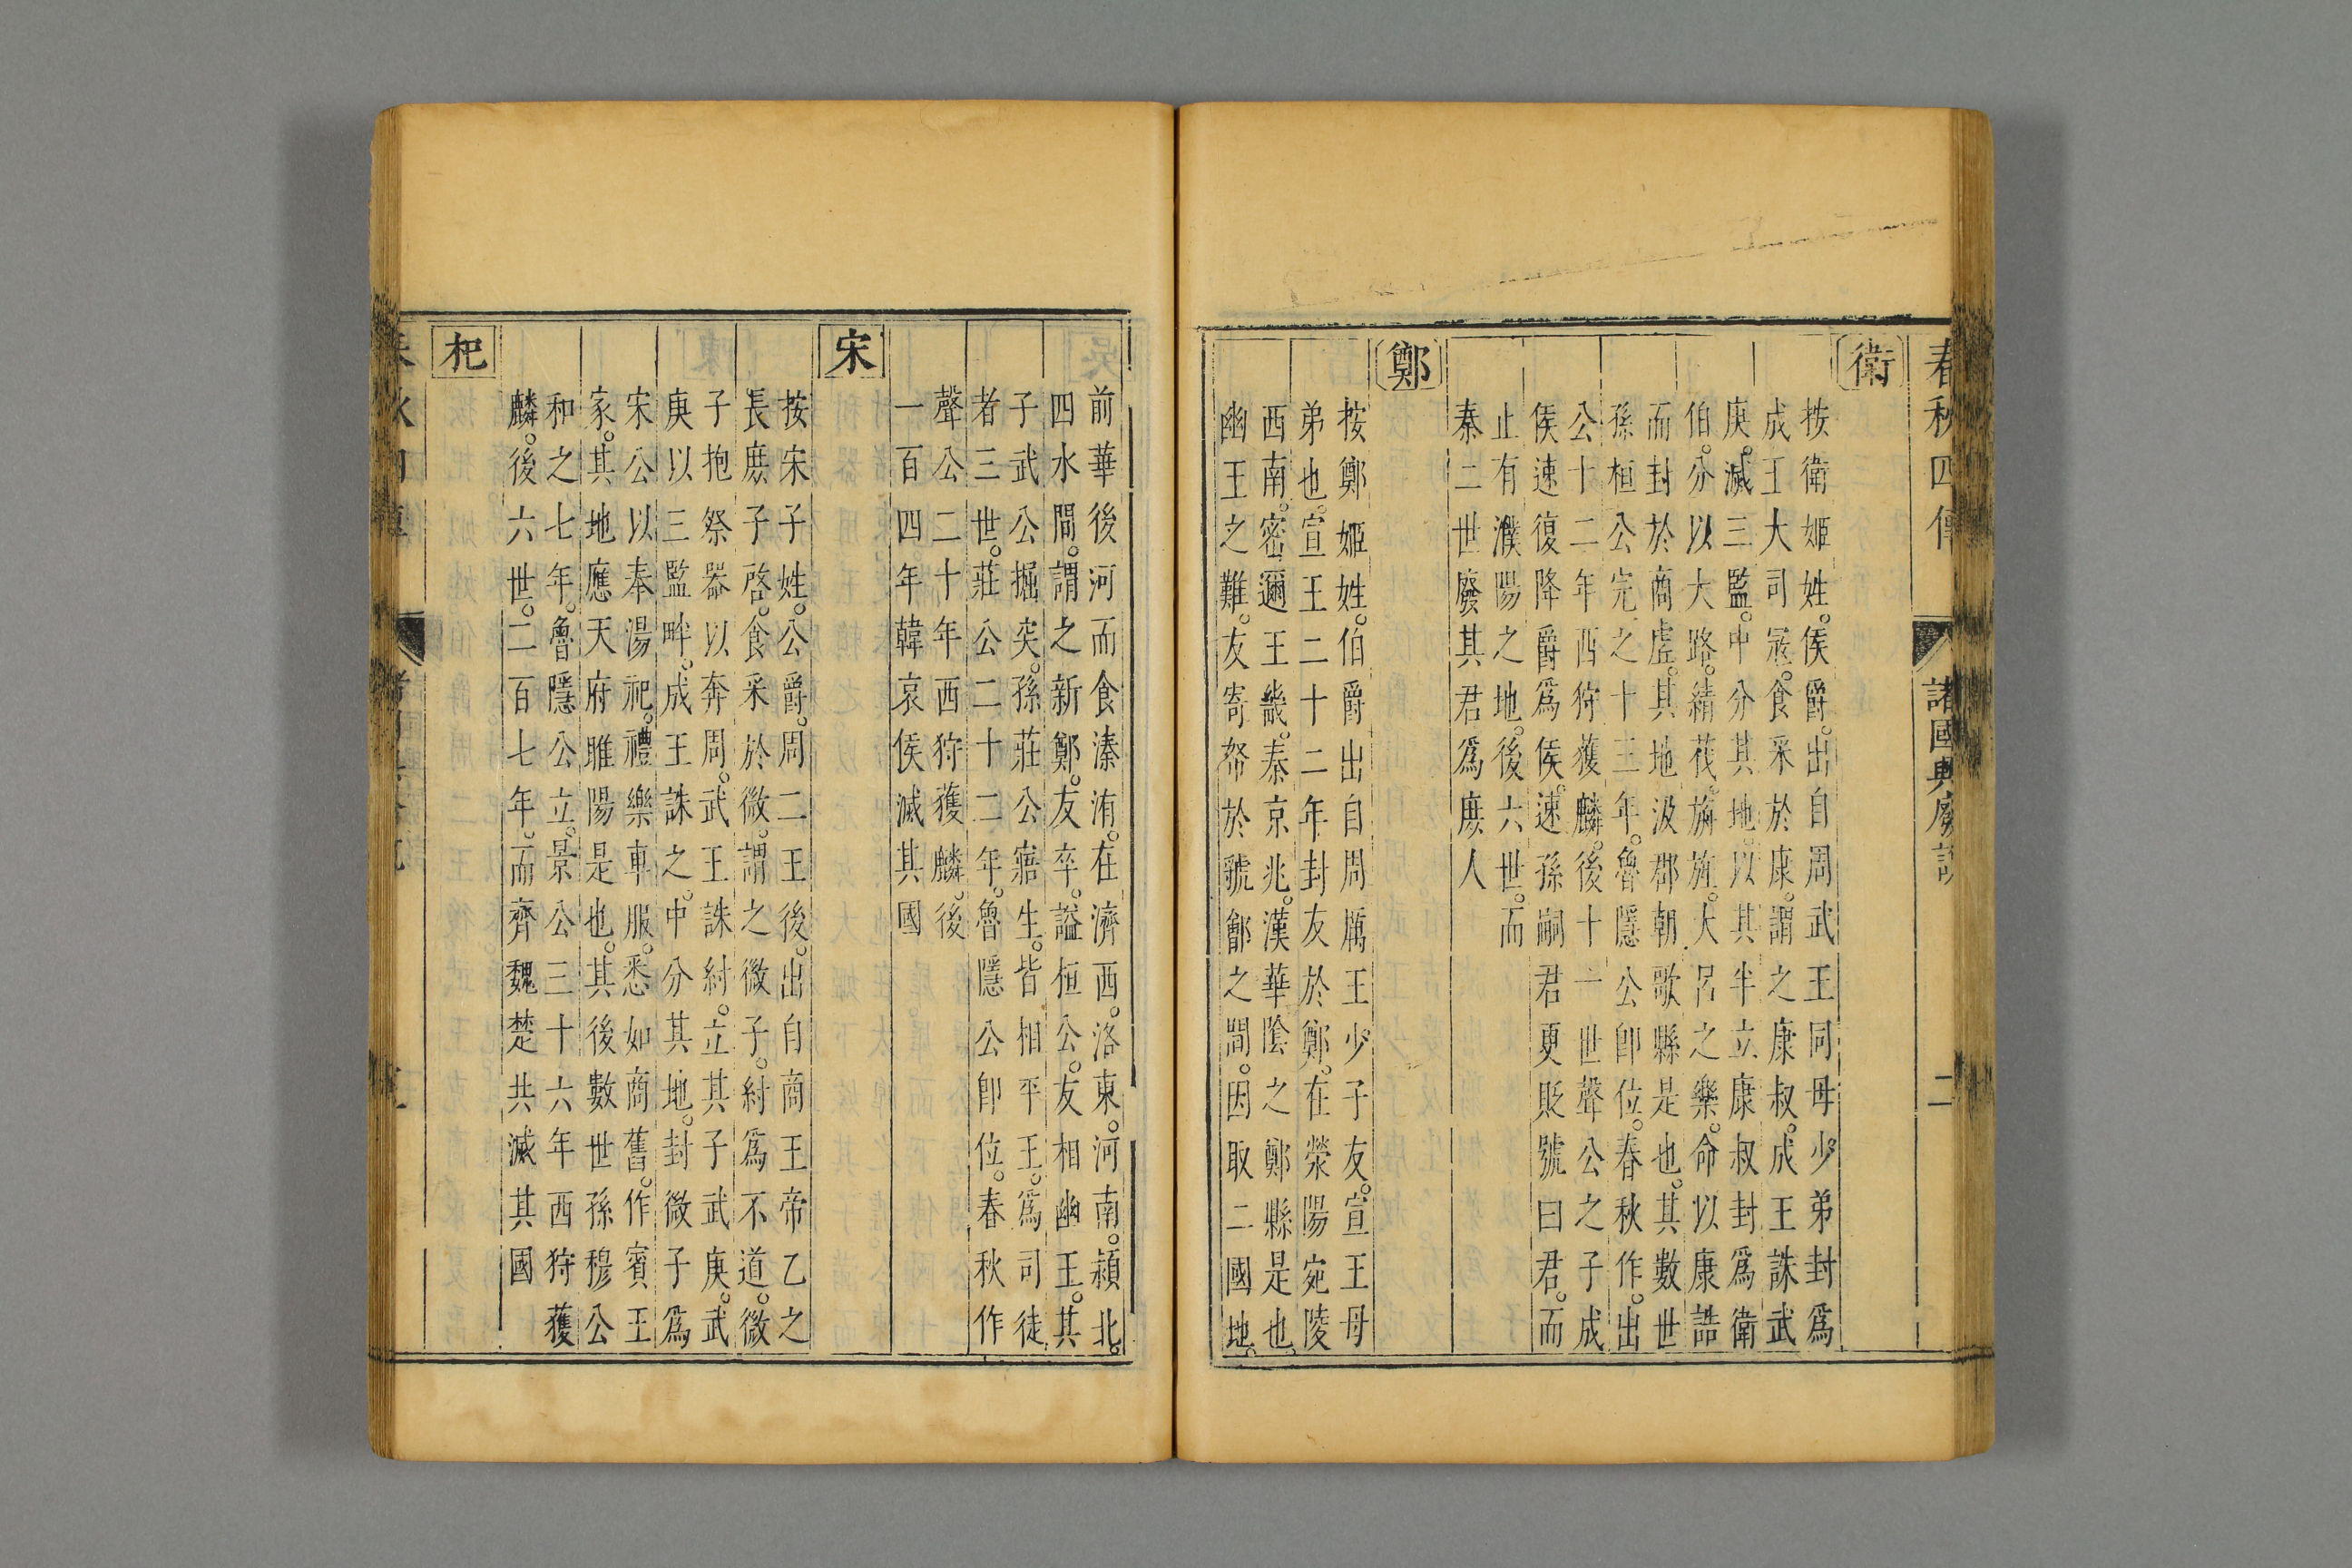 春秋四傳 諸國興廢說 二
衛
按衛姬姓。侯爵。出自周武王同母少弟封爲
成王大司寇。食采於康。謂之康叔。成王誅武
庚。滅三監。中分其地。以其半立康叔封爲衛
伯。分以大路。綪茷。旃旌。大呂之樂。命以康誥
而封於商虛。其地汲郡朝歌縣是也。其數世
孫桓公完之十三年。魯隱公卽位。春秋作。出
公十二年西狩獲麟。後十一世聲公之子成
侯速復降爵爲侯。速孫嗣君更貶號曰君。而
止有濮陽之地。後六世。而
秦二世廢其君爲庶人
鄭
按鄭姬姓。伯爵出自周厲王少子友。宣王母
弟也。宣王二十二年封友於鄭。在滎陽宛陵
西南。密邇王畿。秦京兆。漢華陰之鄭縣是也。
幽王之難。友寄帑於虢鄶之間。因取二國地。
前華後河而食溱洧。在濟西。洛東。河南。潁北。
四水間。謂之新鄭。友卒。謚桓公。友相幽王。其
子武公掘突。孫莊公寤生。皆相平王。爲司徒
者三世。莊公二十二年。魯隱公卽位。春秋作
聲公二十年西狩獲麟。後
一百四年韓哀侯滅其國
宋
按宋子姓。公爵。周二王後。出自商王帝乙之
長庶子啓。食采於微。謂之微子。紂爲不道。微
子抱祭器以奔周。武王誅紂。立其子武庚。武
庚以三監畔。成王誅之。中分其地。封微子爲
宋公以奉湯祀。禮樂車服。悉如商舊。作賓王
家。其地應天府睢陽是也。其後數世孫穆公
和之七年。魯隱公立。景公三十六年西狩獲
麟。後六世。二百七年。而齊魏楚共滅其國
杞